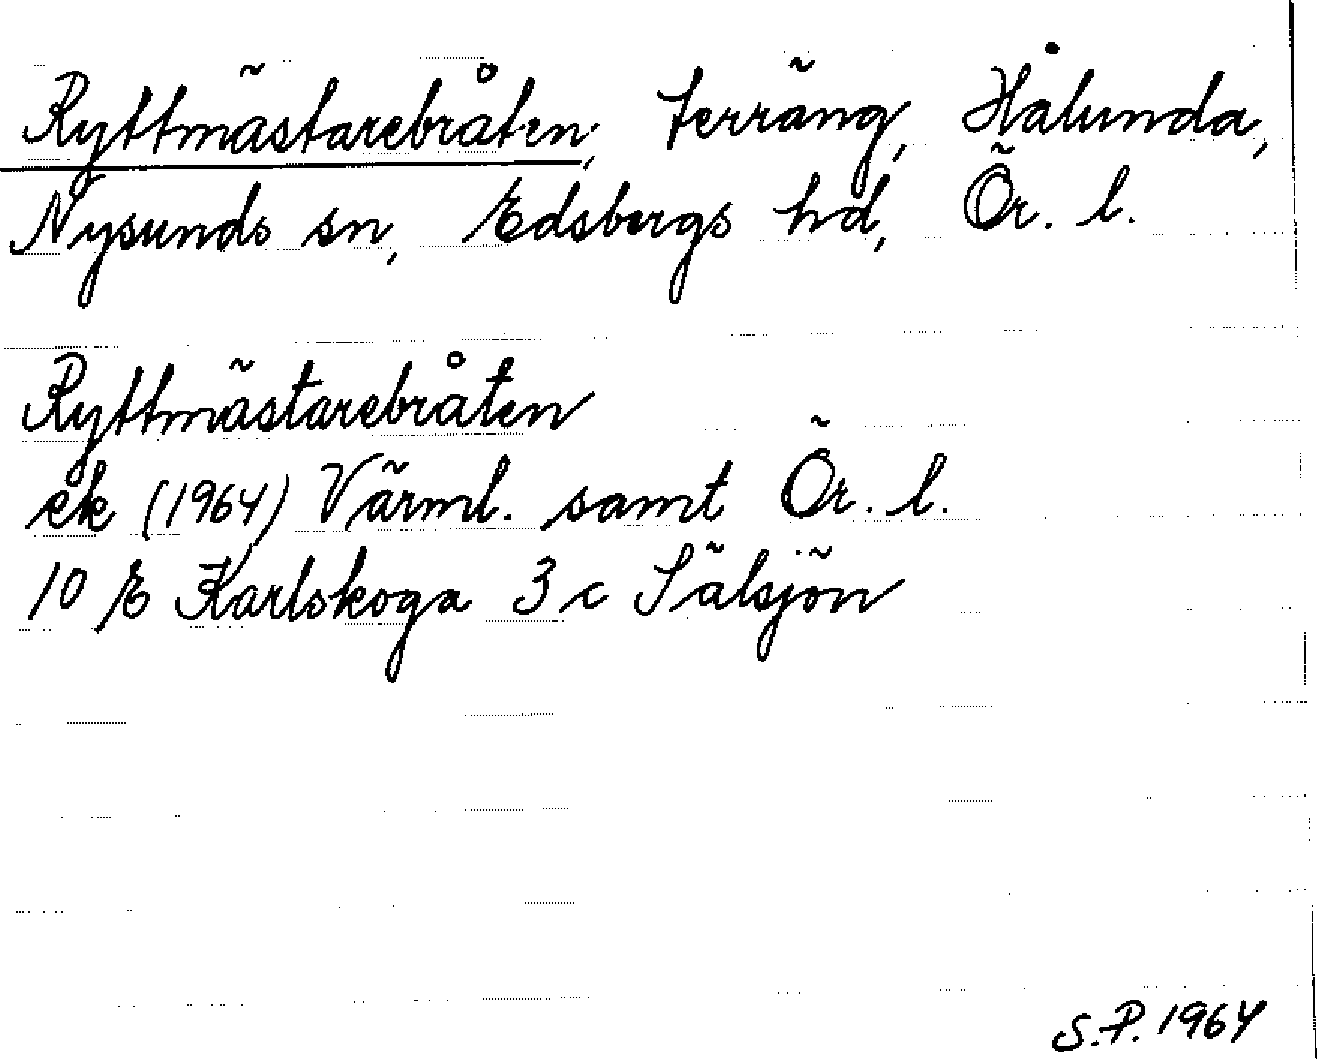 Ryttmästarebråten, terräng, Hålunda,
Nysunds sn, Edsbergs hd, Ör. l.
Ryttmästarebråten
ek (1964) Värml. samt Ör. l.
10 E Karlskoga 3 c Sälsjön
S.P. 1964